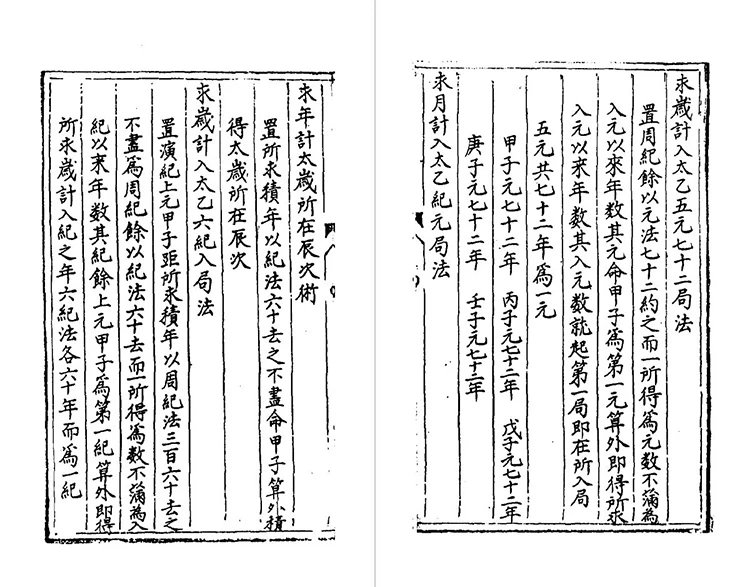 求歲計入太乙五元七十二局法
置周紀餘以元法七十二約之而一所得爲元数不滿為
入元以來年数其元命甲子爲第一元算外即得所求
入元以來年数其入元数就起第一局即在所入局
五元共七十二年爲一元
甲子元七十二年 丙子元七十二年 戊子元七十二年
庚子元七十二年 壬子元七十二年
求月計入太乙紀元局法
求年計太歲所在辰次術
置所求積年以紀法六十去之不盡命甲子算外積
得太歲所在辰次
求歲計入太乙六紀入局法
置演紀上元甲子距所求積年以周紀法三百六十去之
不盡爲周紀餘以紀法六十去而一所得爲数不滿為入
紀以來年数其紀餘上元甲子爲第一紀算外即得
所求歲計入紀之年六紀法各六十年而爲一紀